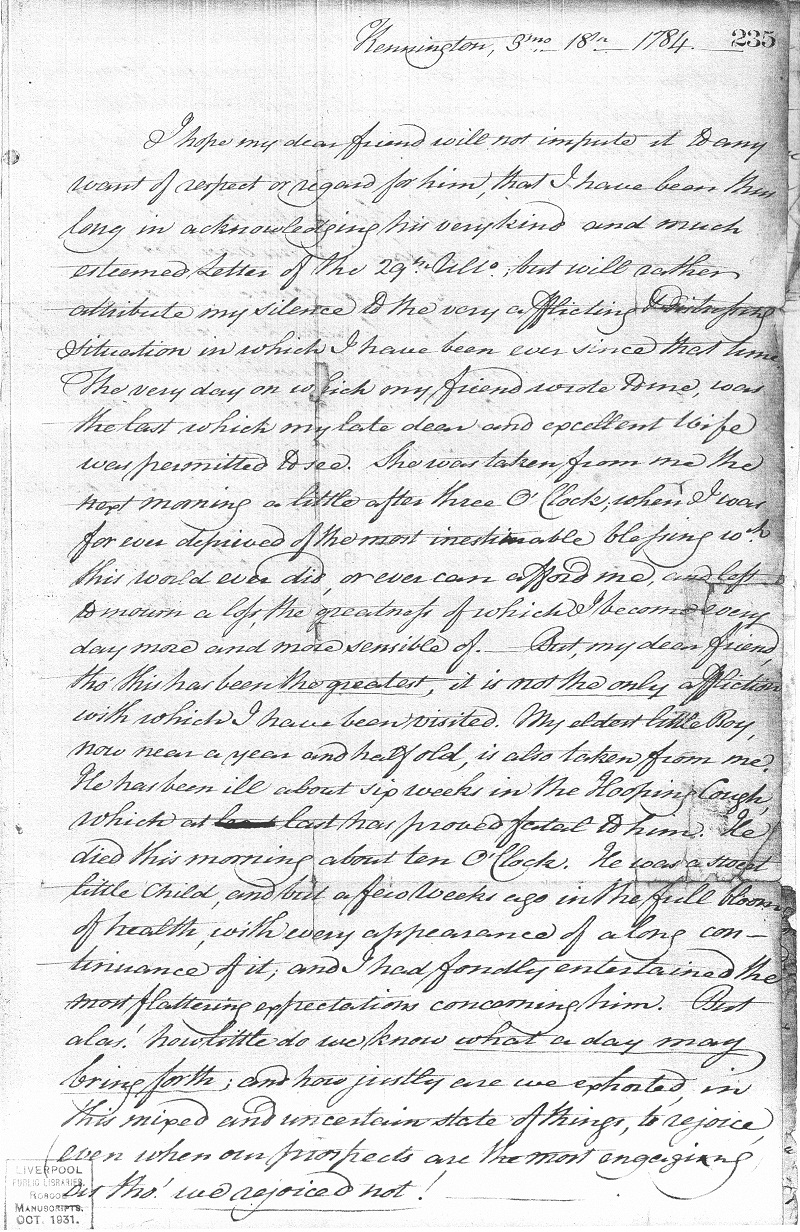 Kennington, 3mo 18th 1784.
235
I hope my dear friend will not impute it to any
want of respect or regard for him, that I have been thus
long in acknowledging his very kind and much
esteemed Letter of the 29th Ullo; but will rather
attribute my silence to the very afflicting & distressing
situation in which I have been ever since that time.
The very day on which my friend wrote to me, was
the last which my late dear and excellent Wife
was permitted to see. She was taken from me the
next morning a little after three O'Clock, when I was
for ever deprived of the most inestimable blessing wch
this world ever did, or ever can afford me, and left
to mourn a loss, the greatness of which I become every
day more and more sensible of. — But, my dear friend,
tho' this has been the greatest, it is not the only affliction
with which I have been visited. My eldest little Boy,
now near a year and half old, is also taken from me.
He has been ill about six weeks in the Hooping Cough,
which at last has proved fatal to him. He
died this morning about ten O'Clock. He was a sweet
little Child, and but a few Weeks ago in the full bloom
of health, with every appearance of a long con-
tinuance of it; and I had fondly entertained the
most flattering expectations concerning him. But
alas! how little do we know what a day may
bring forth; and how justly are we exhorted, in
this mixed and uncertain state of things, to rejoice,
even when our prospects are the most engaging
as tho' we rejoiced not!
LIVERPOOL
PUBLIC LIBRARIES.
ROSCOE
MANUSCRIPTS.
OCT. 1931.